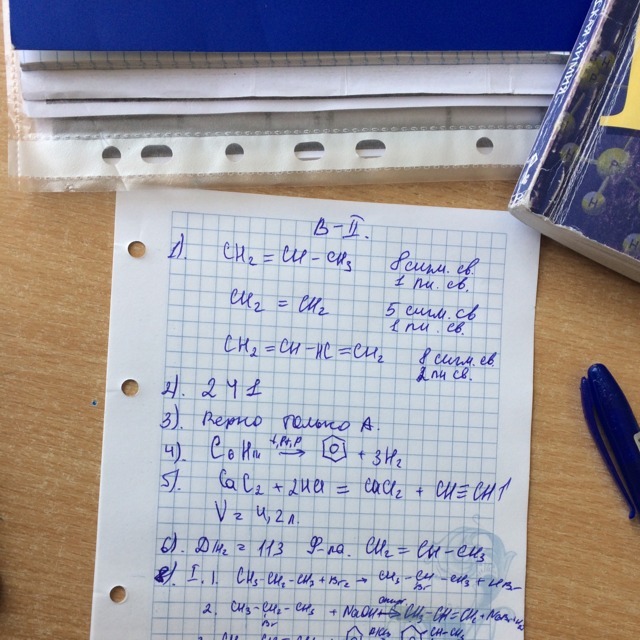 ХИМИЯ
В-II.
1). CH₂ = CH - CH₃ 8 сигм. св.
1 пи. св.
CH₂ = CH₂ 5 сигм. св
1 пи. св.
CH₂ = CH - HC = CH₂ 8 сигм. св.
2 пи св.
2). 2 4 1
3). Верно только А.
4). C₆H₁₄ t, Pt, P → + 3H₂
5). CaC₂ + 2HCl = CaCl₂ + CH≡CH↑
V = 4,2 л.
6). = 113 Ф-ла. CH₂ = CH - CH₃
8) I. 1. CH₃-CH₂-CH₃ + Br₂ → CH₃-CH-CH₃ + HBr
Br
2. CH₃-CH₂-CH₃ + NaOH спирт → CH₃-CH=CH₂ +
Br